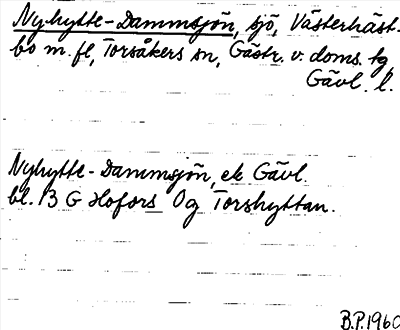 Nyhytte-Dammsjön, sjö, Västerhäst-
bo m.fl, Torsåkers sn, Gästr. v. doms. tg,
Gävl. l.
Nyhytte-Dammsjön, ek Gävl.
bl. 13 G Hofors Og Torshyttan.
B.P.1960